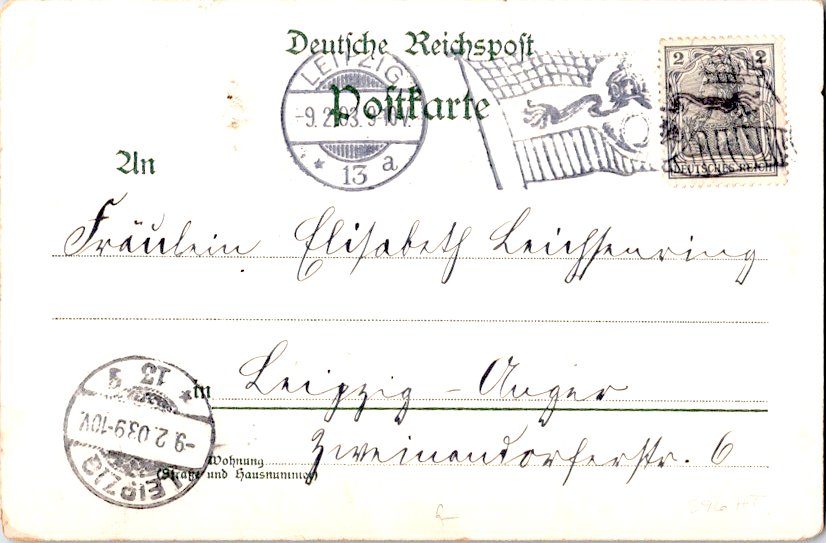 Deutsche Reichspost
Postkarte
LEIPZIG
-9.2.03.9-10V.
* 13 a
2 2
DEUTSCHES REICH
An
Fräulein Elisabeth Leichsenring
in Leipzig - Anger
Zweinaundorferstr. 6
Wohnung
(Straße und Hausnummer)
LEIPZIG
-9.2.03 9-10V.
* 13